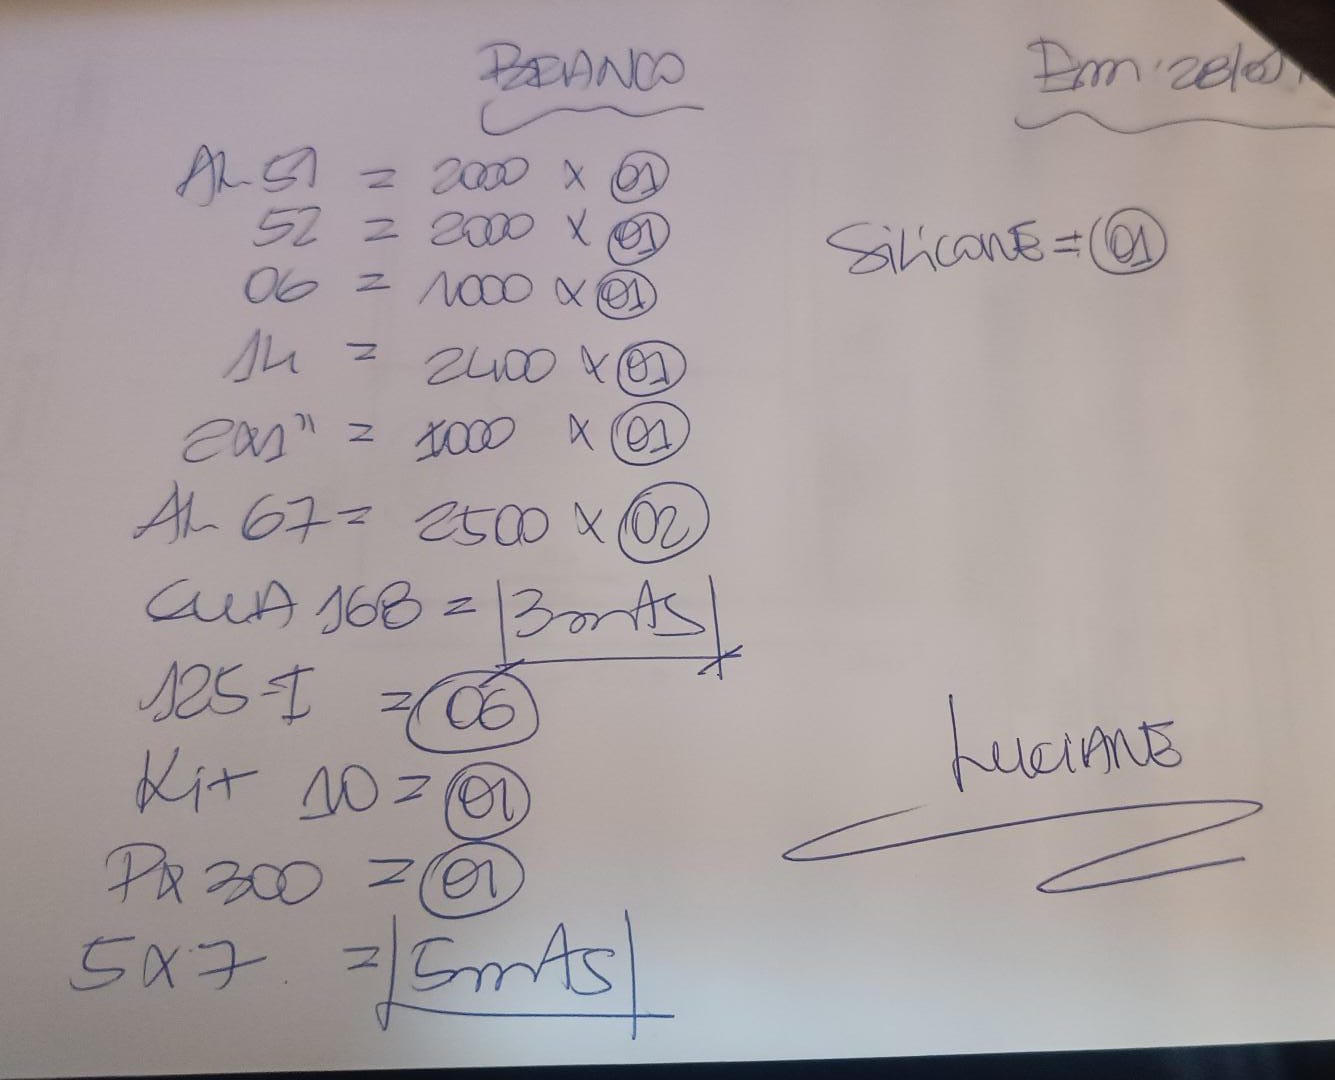 BRANCO
Em: 28/01
AL 51 = 2000 x 01
52 = 2000 x 01
Silicone = 01
06 = 1000 x 01
14 = 2400 x 01
2x1" = 1000 x 01
AL 67 = 2500 x 02
168 = 3mts
125-I = 06
LUCIANE
Kit 10 = 01
300 = 01
5x7 = 5mts